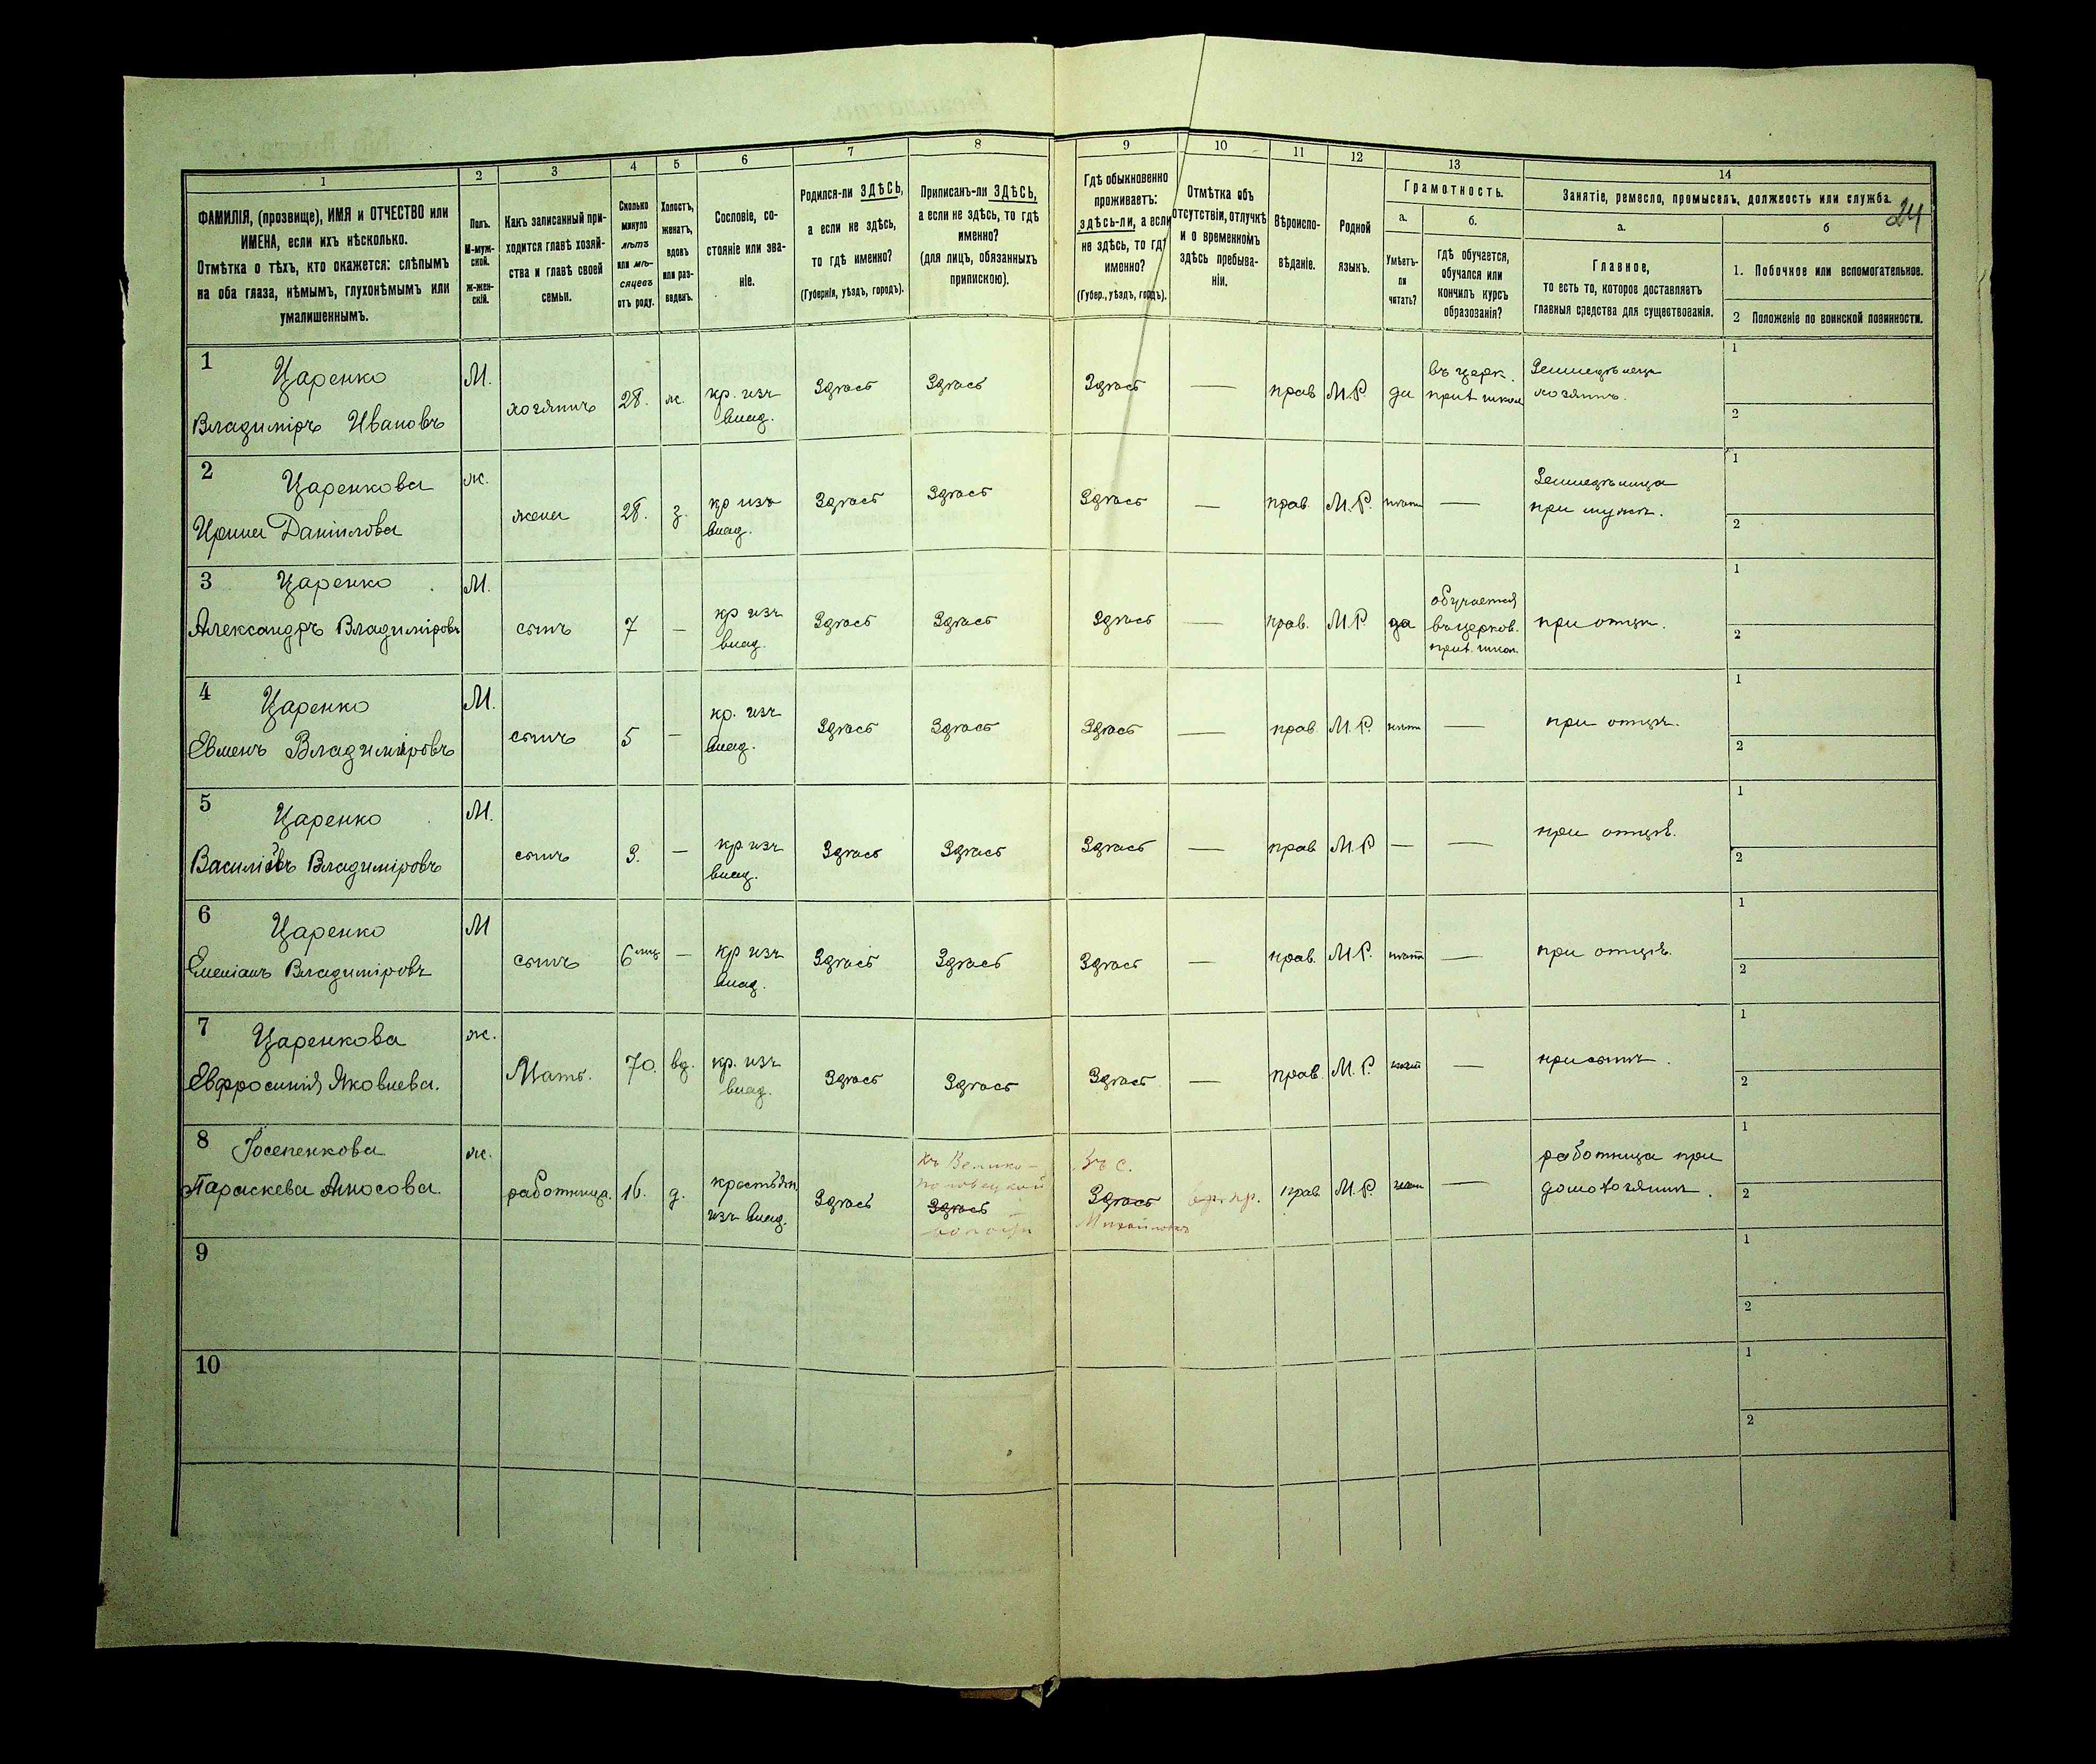 24
1
2
3
4
5
6
7
8
9
10
11
12
13
14
ФАМИЛІЯ, (прозвище), ИМЯ и ОТЧЕСТВО или
ИМЕНА, если ихъ нѣсколько.
Отмѣтка о тѣхъ, кто окажется: слѣпымъ
на оба глаза, нѣмымъ, глухонѣмымъ или
умалишеннымъ.
Полъ.
М-муж-
ской.
ж-жен-
скій.
Какъ записанный при-
ходится главѣ хозяй-
ства и главѣ своей
семьи.
Сколько
минуло
лѣтъ
или мѣ-
сяцевъ
отъ роду.
Холостъ,
женатъ,
вдовъ
или раз-
веденъ.
Сословіе, со-
стояніе или зва-
ніе.
Родился-ли ЗДѢСЬ,
а если не здѣсь,
то гдѣ именно?
(Губернія, уѣздъ, городъ).
Приписанъ-ли ЗДѢСЬ,
а если не здѣсь, то гдѣ
именно?
(для лицъ, обязанныхъ
припискою).
Гдѣ обыкновенно
проживаетъ:
здѣсь-ли, а если
не здѣсь, то гдѣ
именно?
(Губер., уѣздъ, городъ).
Отмѣтка объ
отсутствіи, отлучкѣ
и о временномъ
здѣсь пребыва-
ніи.
Вѣроиспо-
вѣданіе.
Родной
языкъ.
Грамотность.
а.
Умѣетъ-
ли
читать?
б.
гдѣ обучается,
обучался или
кончилъ курсъ
образованія?
Занятіе, ремесло, промыселъ, должность или служба.
а.
Главное,
то есть то, которое доставляетъ
главныя средства для существованія.
б
1. Побочное или вспомогательное.
2 Положеніе по воинской повинности.
1 Царенко
Владиміръ Ивановъ
М.
хозяинъ
28.
ж.
кр. изъ
влад.
Здѣсь
Здѣсь
Здѣсь
—
прав
М.Р.
да
въ церк.
прих школ
Земледѣлецъ
хозяинъ.
1
2
2 Царенкова
Ирина Даниілова
ж.
жена
28.
з.
кр изъ
влад.
Здѣсь
Здѣсь
Здѣсь
—
прав.
М.Р.
нѣтъ
—
Земледѣлица
при мужѣ.
1
2
3 Царенко
Александръ Владиміровъ
М.
сынъ
7
—
кр изъ
влад.
Здѣсь
Здѣсь
Здѣсь
—
прав.
М.Р.
да
обучается
въ церков.
прих. школ.
при отцѣ.
1
2
4 Царенко
Евменъ Владиміровъ
М.
сынъ
5
—
кр. изъ
влад.
Здѣсь
Здѣсь
Здѣсь
—
прав.
М.Р.
нѣтъ
—
при отцѣ.
1
2
5 Царенко
Владиміровъ
М.
сынъ
3.
—
кр изъ
влад.
Здѣсь
Здѣсь
Здѣсь
—
прав
М.Р
—
—
при отцѣ.
1
2
6 Царенко
Емеліанъ Владиміровъ
М
сынъ
6 мѣс
—
кр изъ
влад.
Здѣсь
Здѣсь
Здѣсь
—
прав.
М.Р.
нѣтъ
—
при отцѣ.
1
2
7 Царенкова
Евфросинія Яковлева.
ж.
Мать.
70.
вд.
кр. изъ
влад.
Здѣсь
Здѣсь
Здѣсь
—
прав.
М.Р.
нѣтъ
—
при сынѣ.
1
2
8
Параскева Амосова.
ж.
работница.
16.
д.
крестьян
изъ влад.
Здѣсь
Къ Велико-
половецкой
Здѣсь
волости
Въ с.
Здѣсь
вр. пр.
прав.
М.Р.
нѣтъ
—
работница при
домохозяинѣ.
1
2
9
1
2
10
1
2